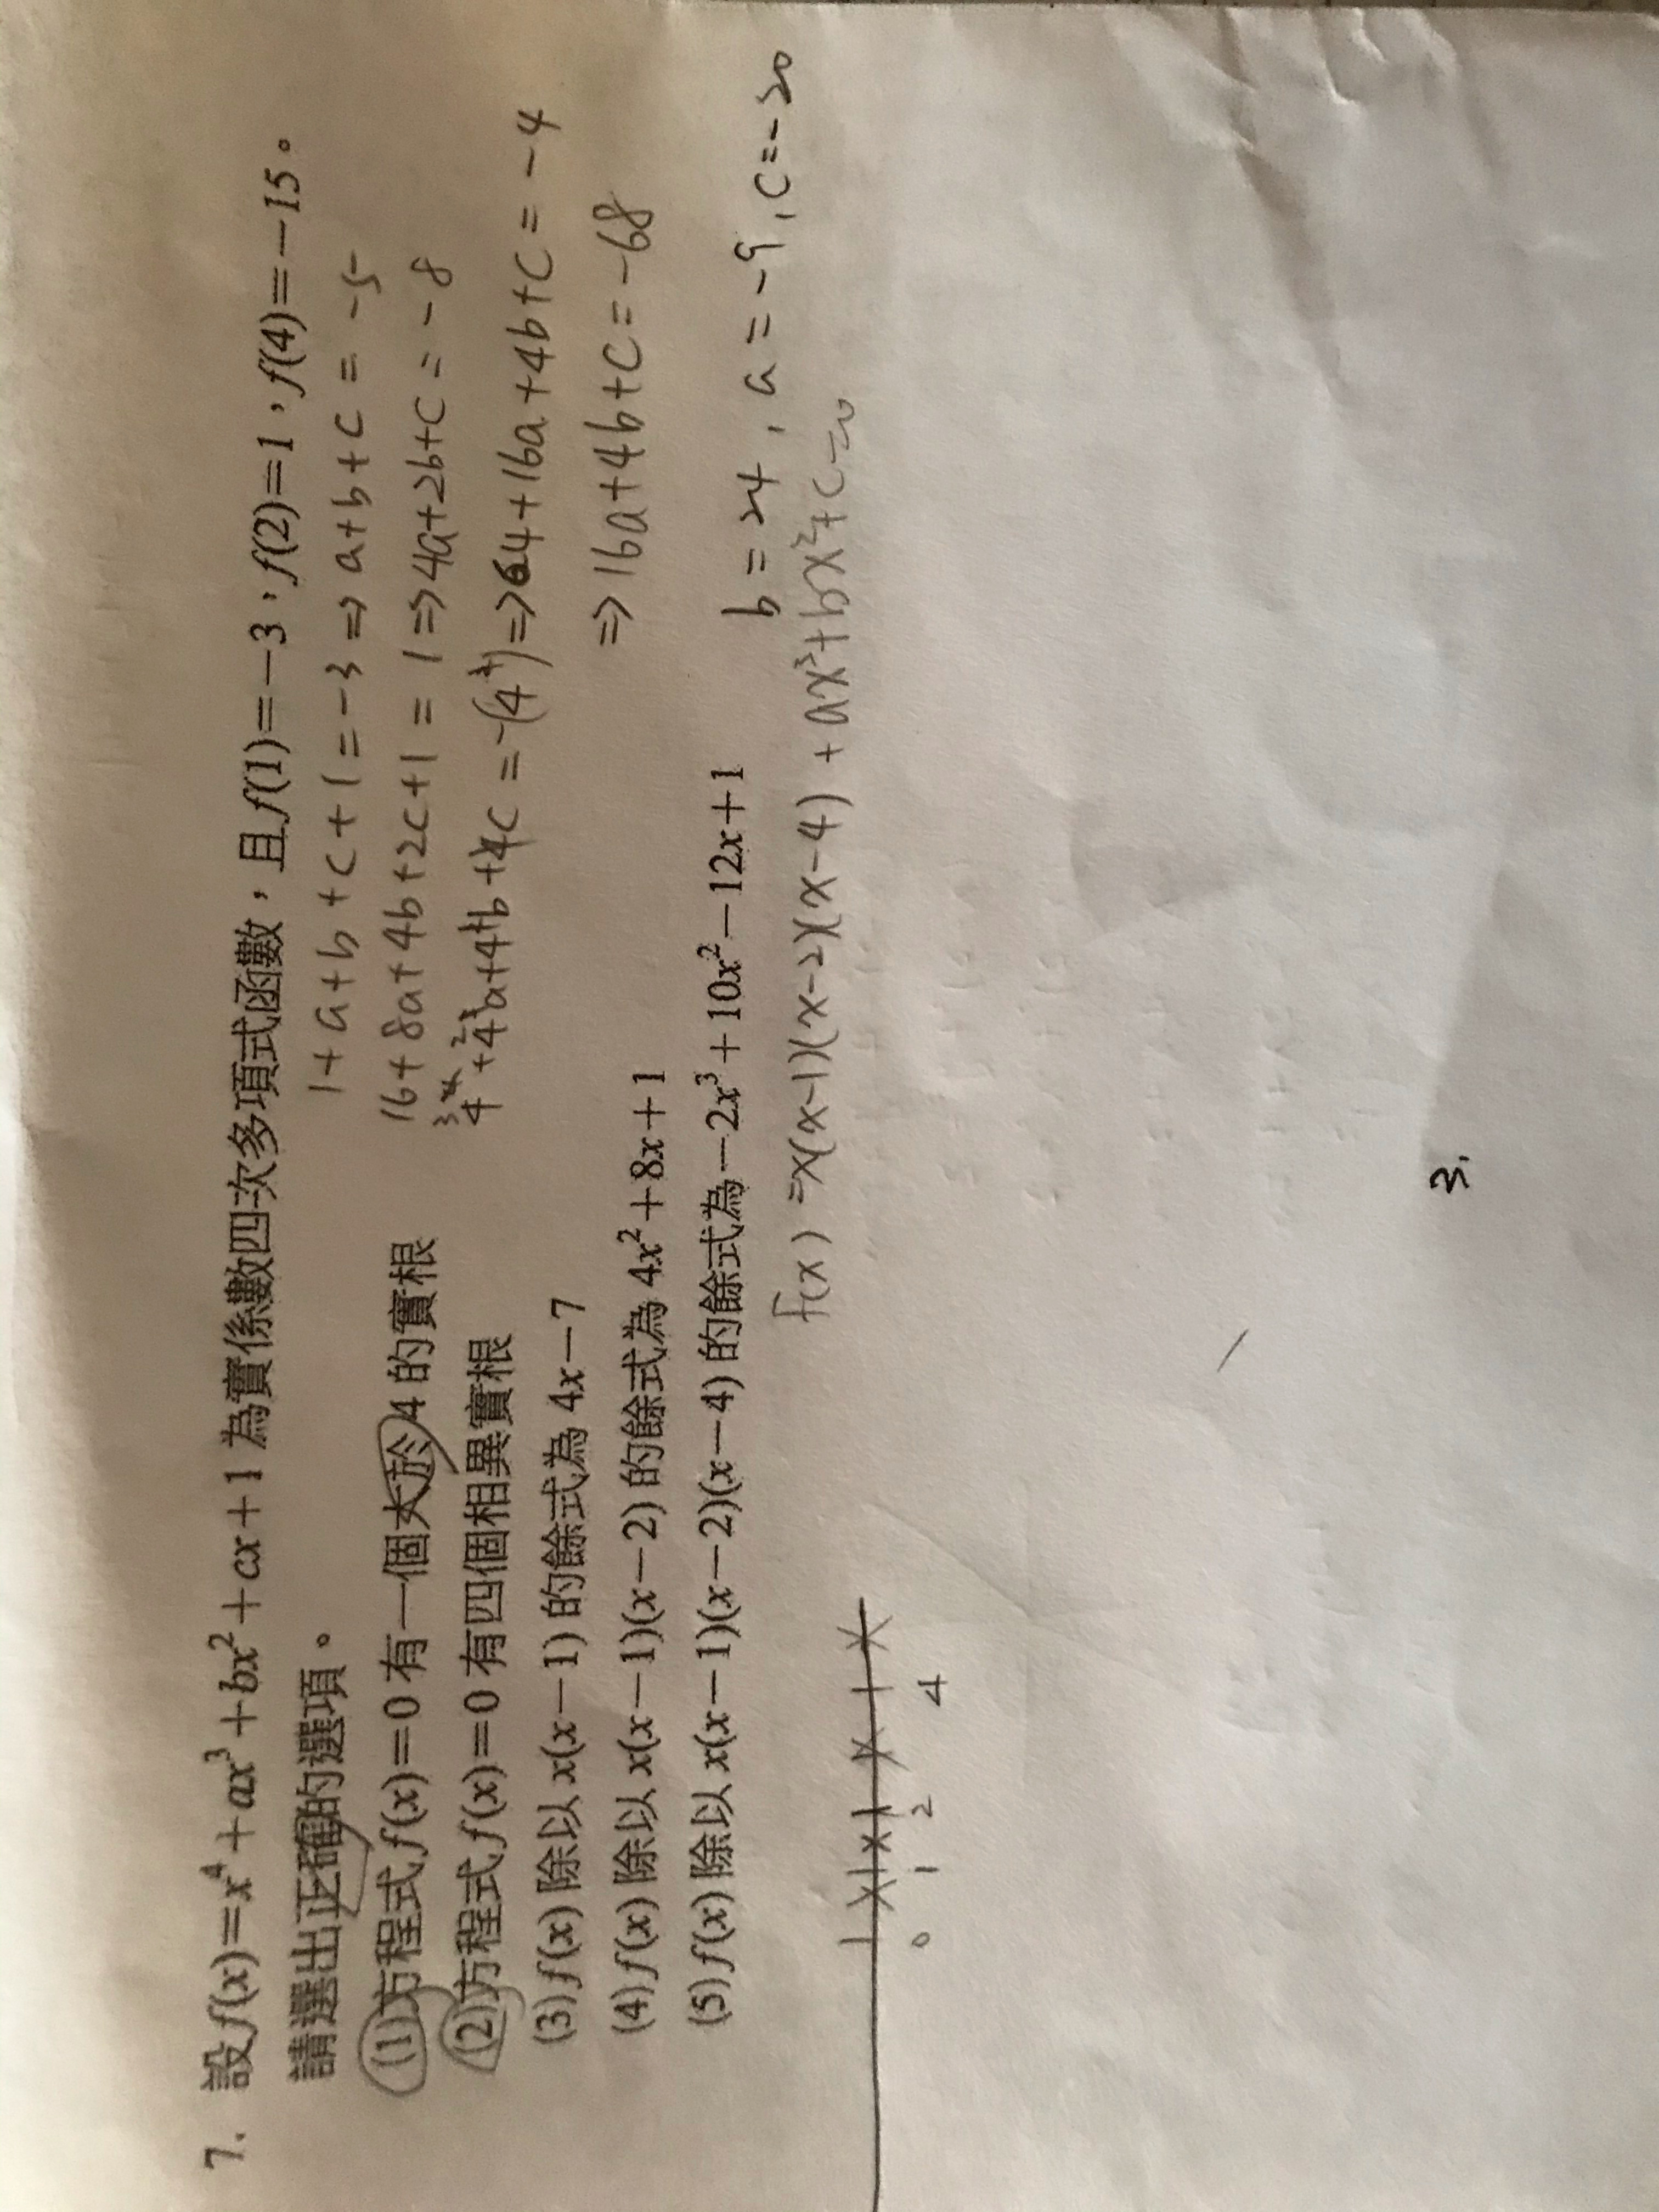 7. 設f(x)=x⁴+ax³+bx²+cx+1為實係數四次多項式函數，且f(1)=−3，f(2)=1，f(4)=−15。
請選出正確的選項。
1+a+b+c+1=-3⇒a+b+c=-5
(1)方程式f(x)=0有一個大於4的實根
16+8a+4b+2c+1=1⇒4a+2b+c=-8
(2)方程式f(x)=0有四個相異實根
⇒64+16a+4b+c=-4
(3)f(x)除以x(x−1)的餘式為4x−7
⇒16a+4b+c=-68
(4)f(x)除以x(x−1)(x−2)的餘式為4x²+8x+1
(5)f(x)除以x(x−1)(x−2)(x−4)的餘式為−2x³+10x²−12x+1
b=24,a=-9,c=-20
f(x)=x(x-1)(x-2)(x-4)+ax³+bx²+c=0
0 1 2 4
3.